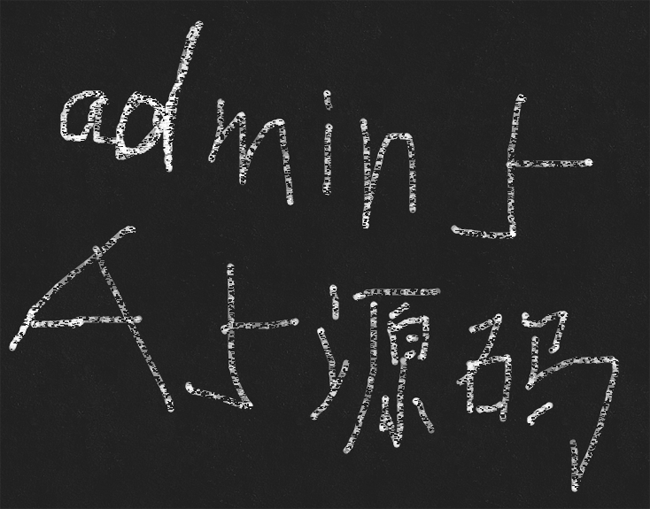 admin上
A上源码